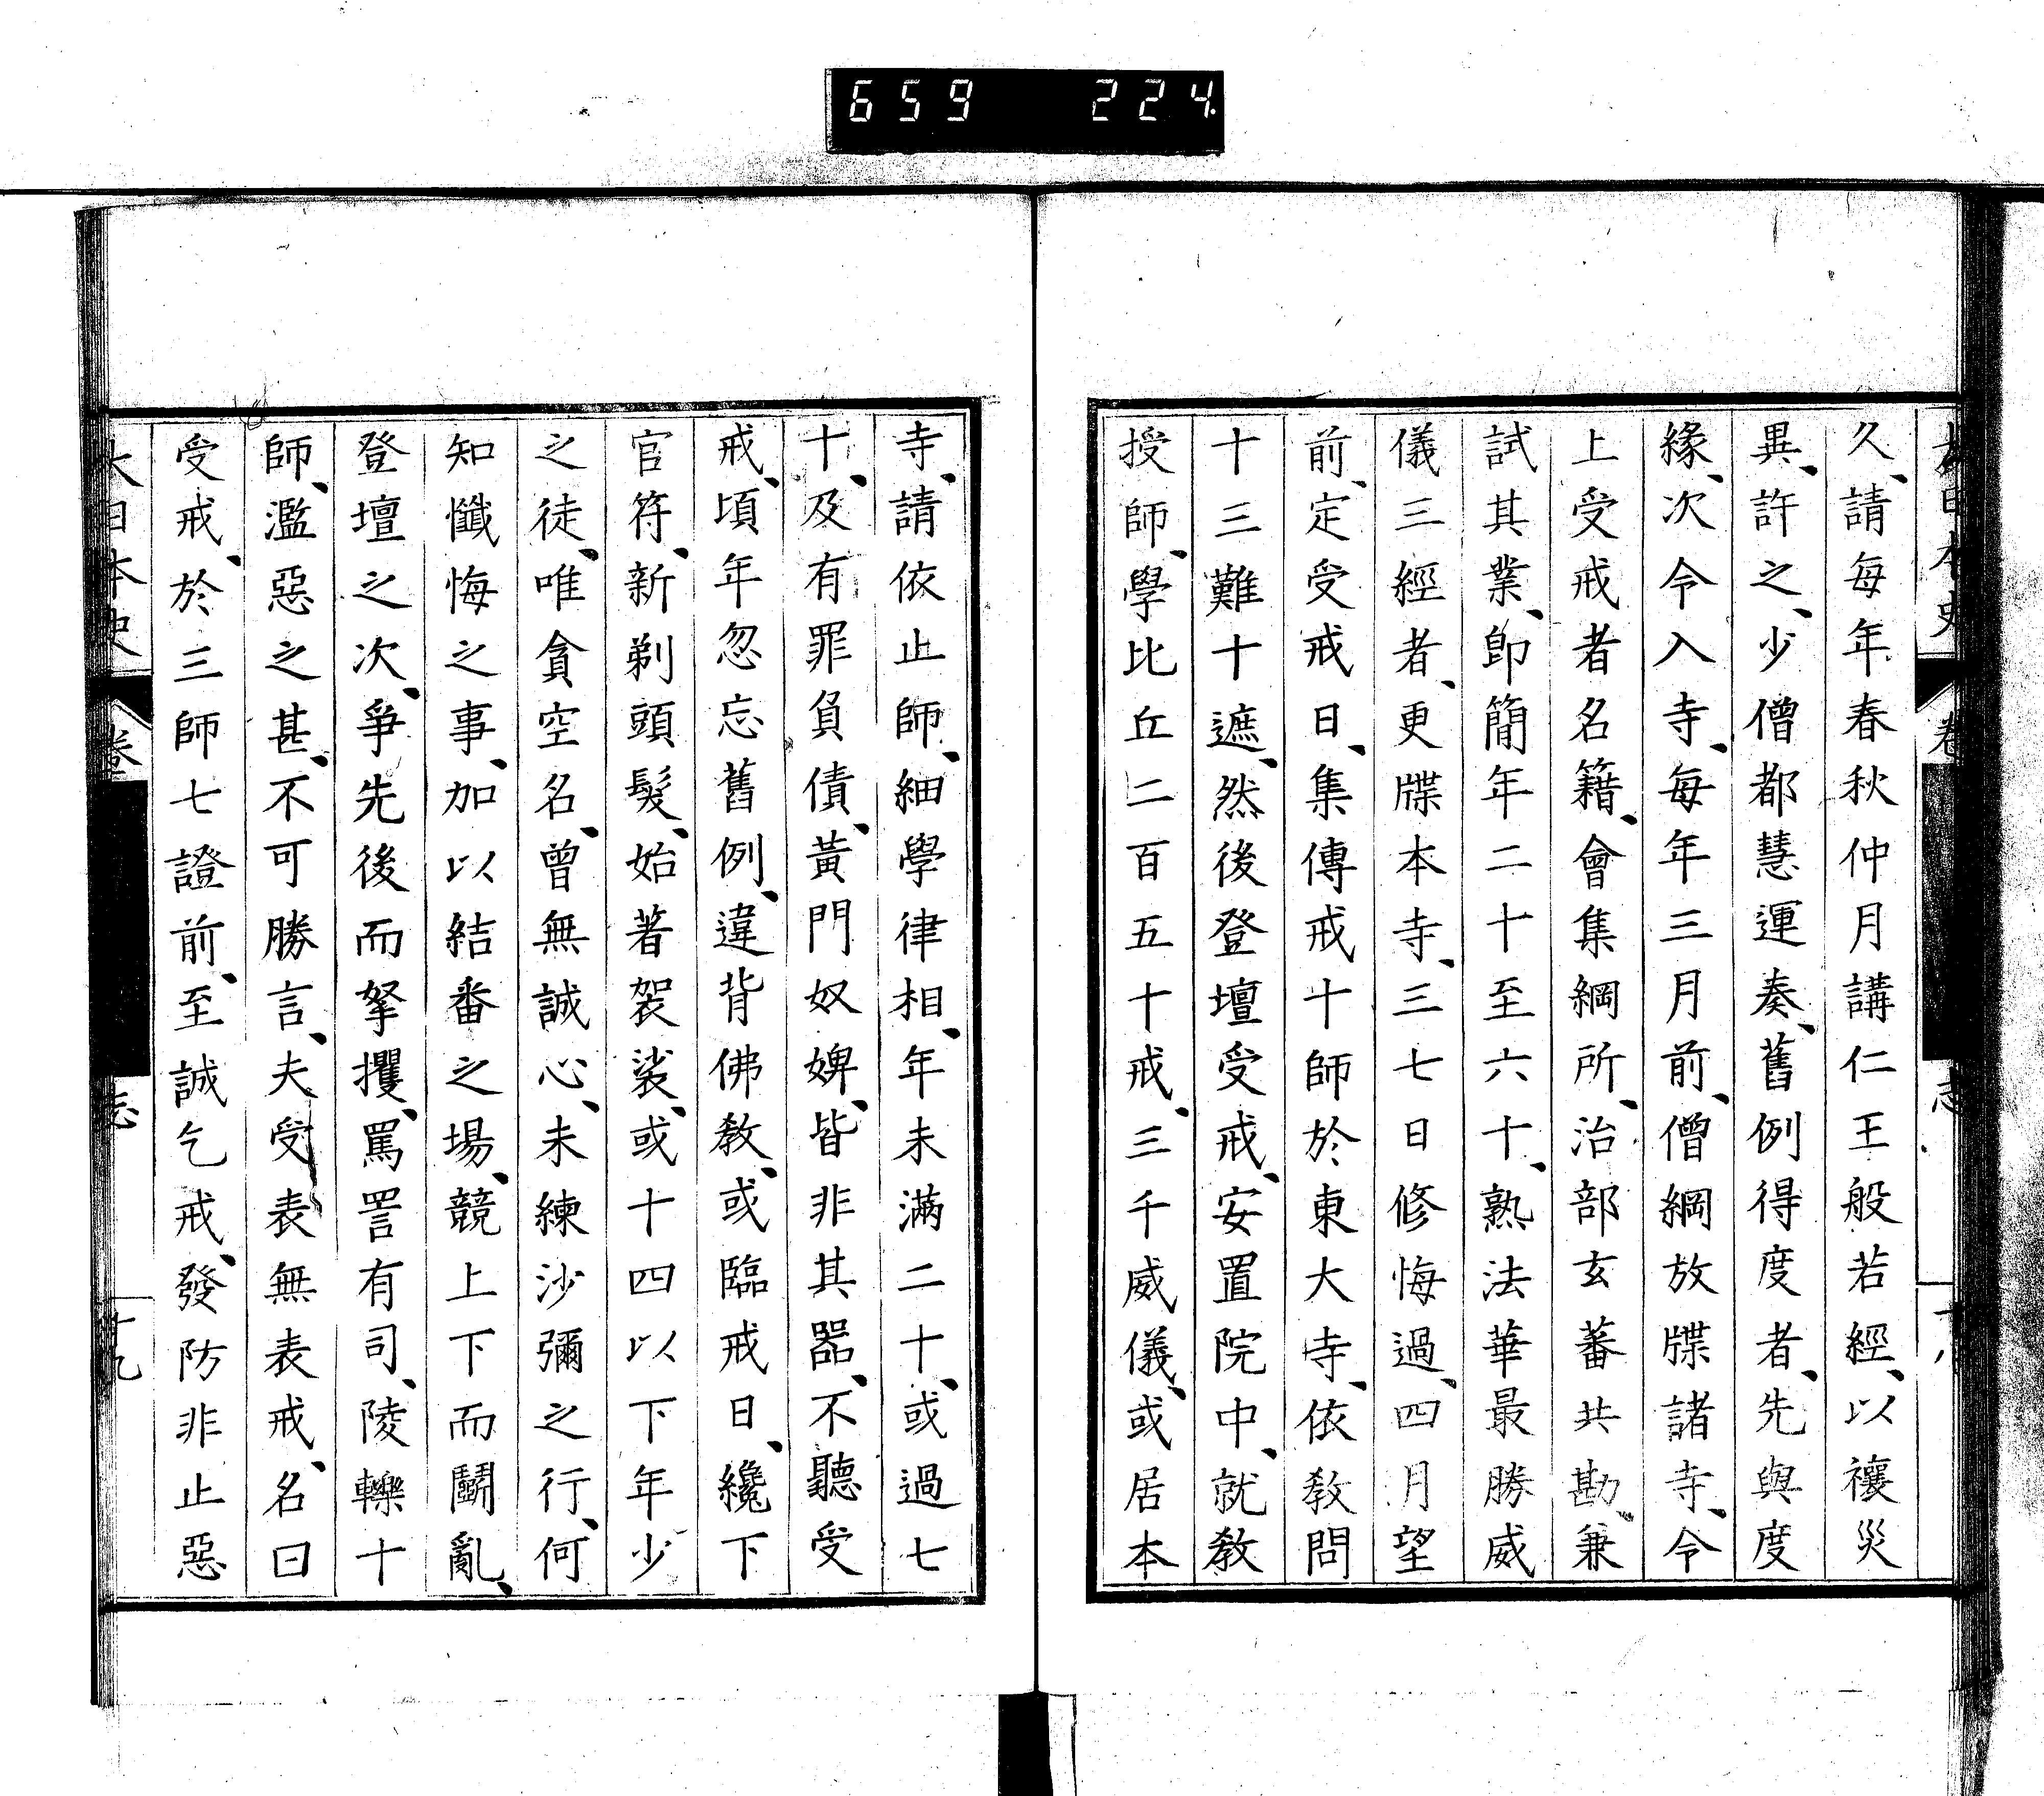 659 224
久、請每年春秋仲月講仁王般若經、以禳災
異、許之、少僧都慧運奏、舊例得度者、先與度
緣、次令入寺、每年三月前、僧綱放牒諸寺、令
上受戒者名籍、會集綱所、治部玄蕃共勘、兼
試其業、卽簡年二十至六十、熟法華最勝威
儀三經者、更牒本寺、三七日修悔過、四月望
前、定受戒日、集傳戒十師於東大寺、依教問
十三難十遮、然後登壇受戒、安置院中、就教
授師、學比丘二百五十戒、三千威儀、或居本
寺、請依止師、細學律相、年未滿二十、或過七
十、及有罪負債、黃門奴婢、皆非其器、不聽受
戒、頃年忽忘舊例、違背佛教、或臨戒日、纔下
官符、新剃頭髮、始著袈裟、或十四以下年少
之徒、唯貪空名、曾無誠心、未練沙彌之行、何
知懺悔之事、加以結番之場、競上下而鬭亂、
登壇之次、爭先後而拏攫、罵詈有司、陵轢十
師、濫惡之甚、不可勝言、夫受表無表戒、名曰
受戒、於三師七證前、至誠乞戒、發防非止惡
大日本史 卷 志 十九